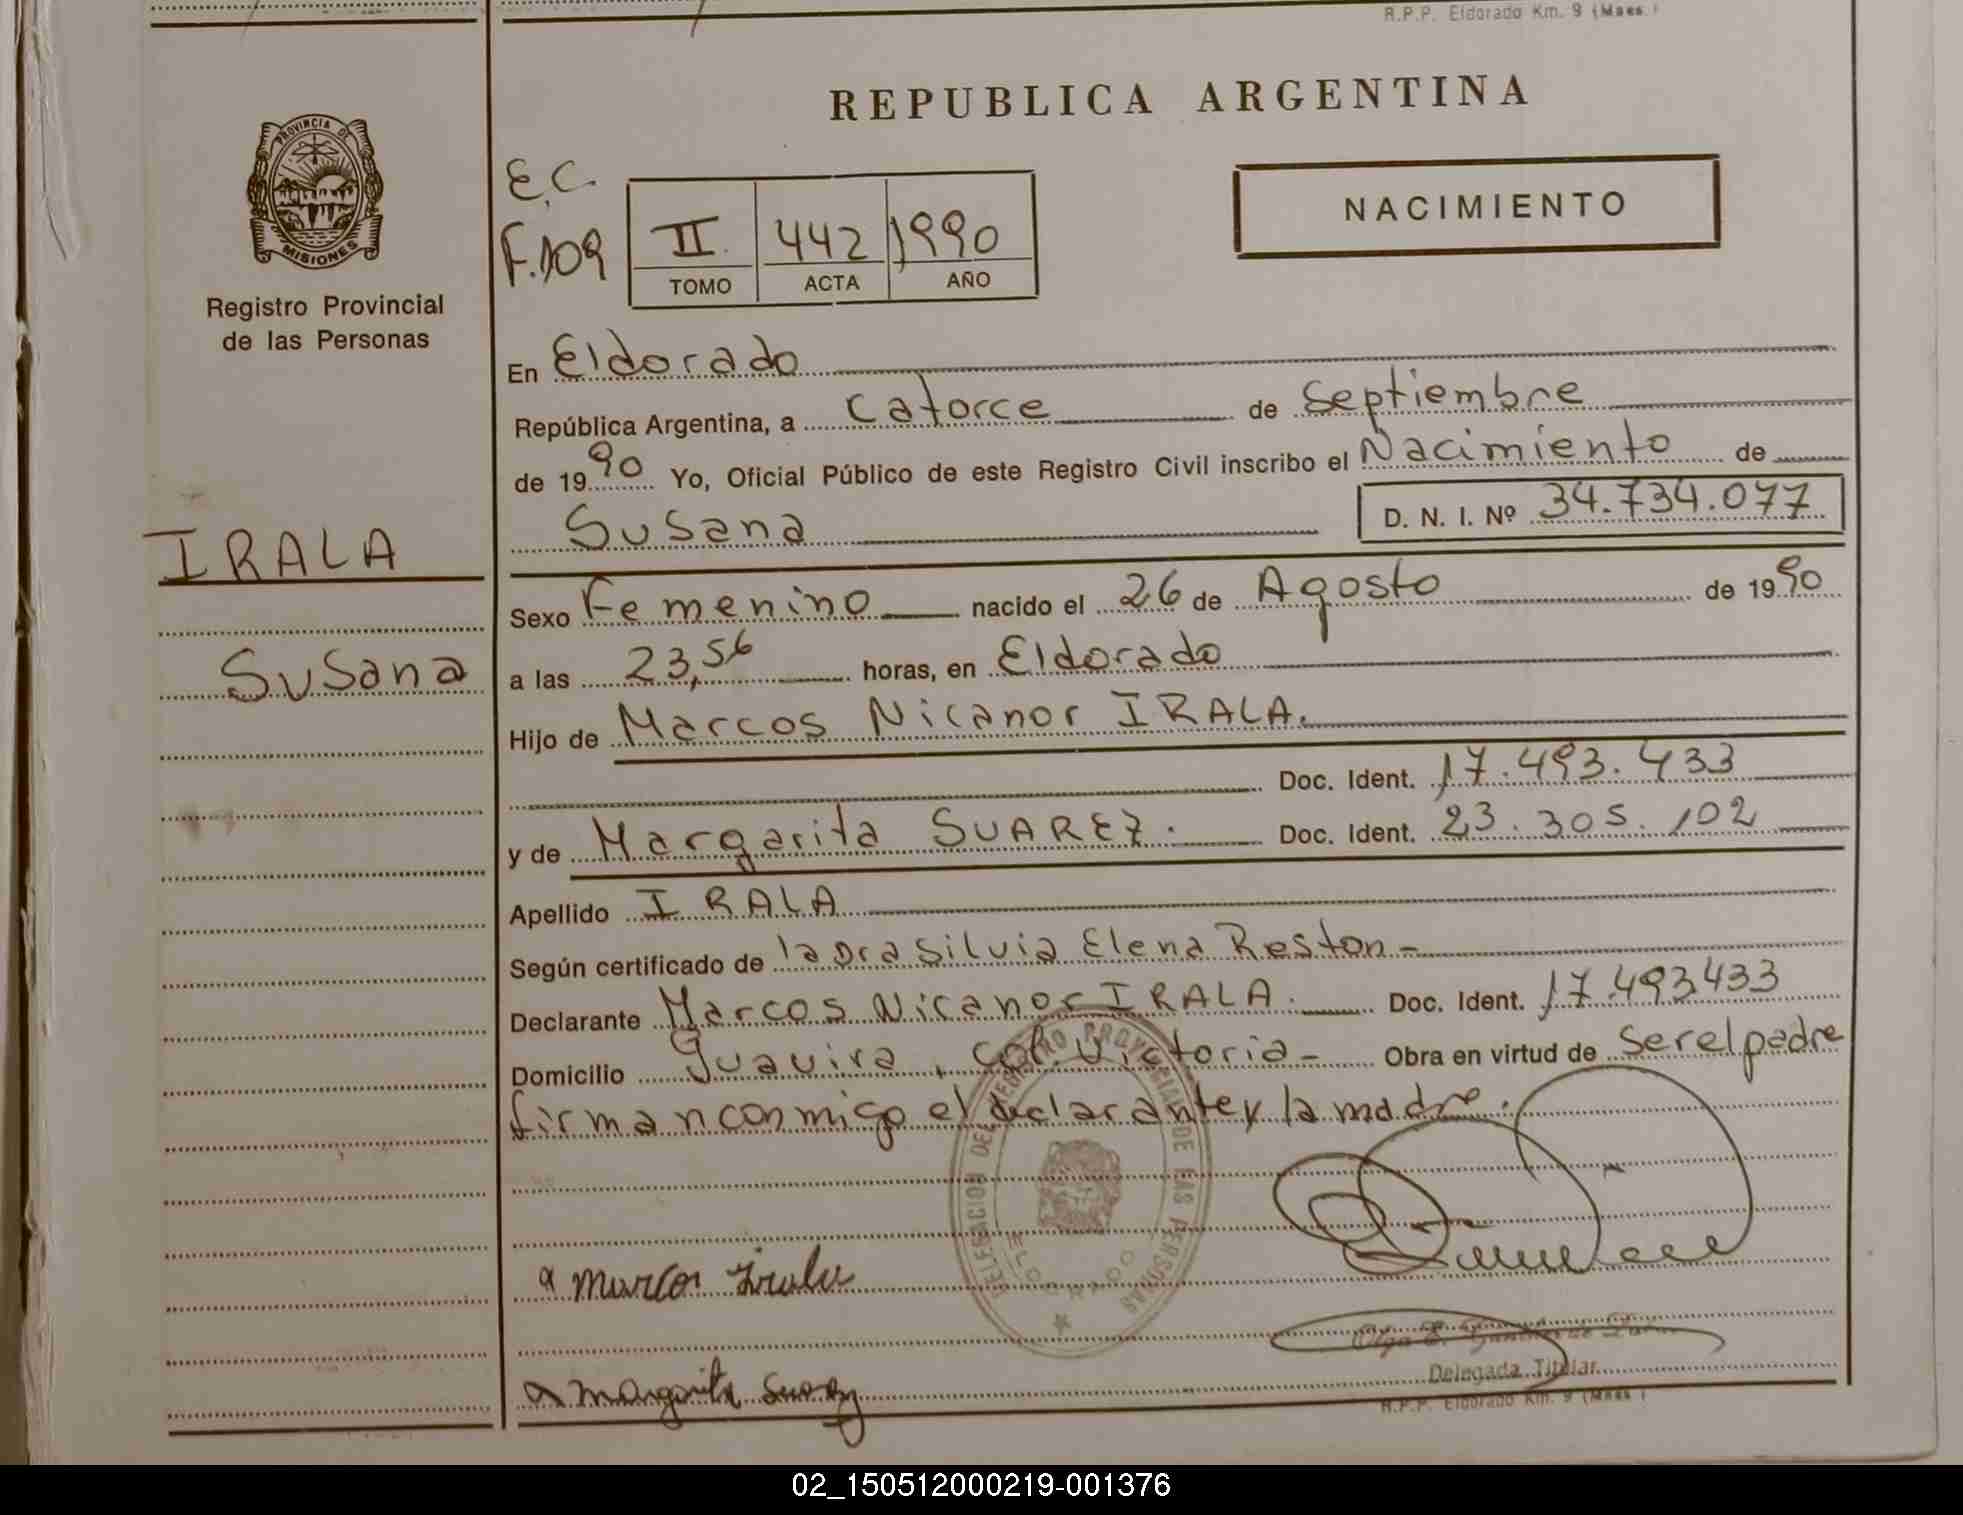 R.P.P. Eldorado Km. 9 (Mnes.)
PROVINCIA DE
MISIONES
Registro Provincial
de las Personas
IRALA
Susana
REPUBLICA ARGENTINA
E.C.
F.109
II 442 1990
TOMO ACTA AÑO
NACIMIENTO
En Eldorado
República Argentina, a catorce de septiembre
de 1990 Yo, Oficial Público de este Registro Civil inscribo el Nacimiento de
Susana D. N. I. Nº 34.734.077
Sexo Femenino nacido el 26 de Agosto de 1990
a las 23,56 horas, en Eldorado
Hijo de Marcos Nicanor IRALA.
Doc. Ident. 17.493.433
y de Margarita SUAREZ. Doc. Ident. 23.305.102
Apellido IRALA
Según certificado de la Dra Silvia Elena Reston-
Declarante Marcos Nicanor IRALA. Doc. Ident. 17.493433
Domicilio Guavira, col. Victoria- Obra en virtud de ser el padre
firman conmigo el declarante y la madre.
DELEGACION DEL REGISTRO PROVINCIAL DE LAS PERSONAS
ELDORADO
x Marcos Irala
x Margarita Suarez
Olga E.
Delegada Titular
R.P.P. Eldorado Km. 9 (Mnes.)
02_150512000219-001376